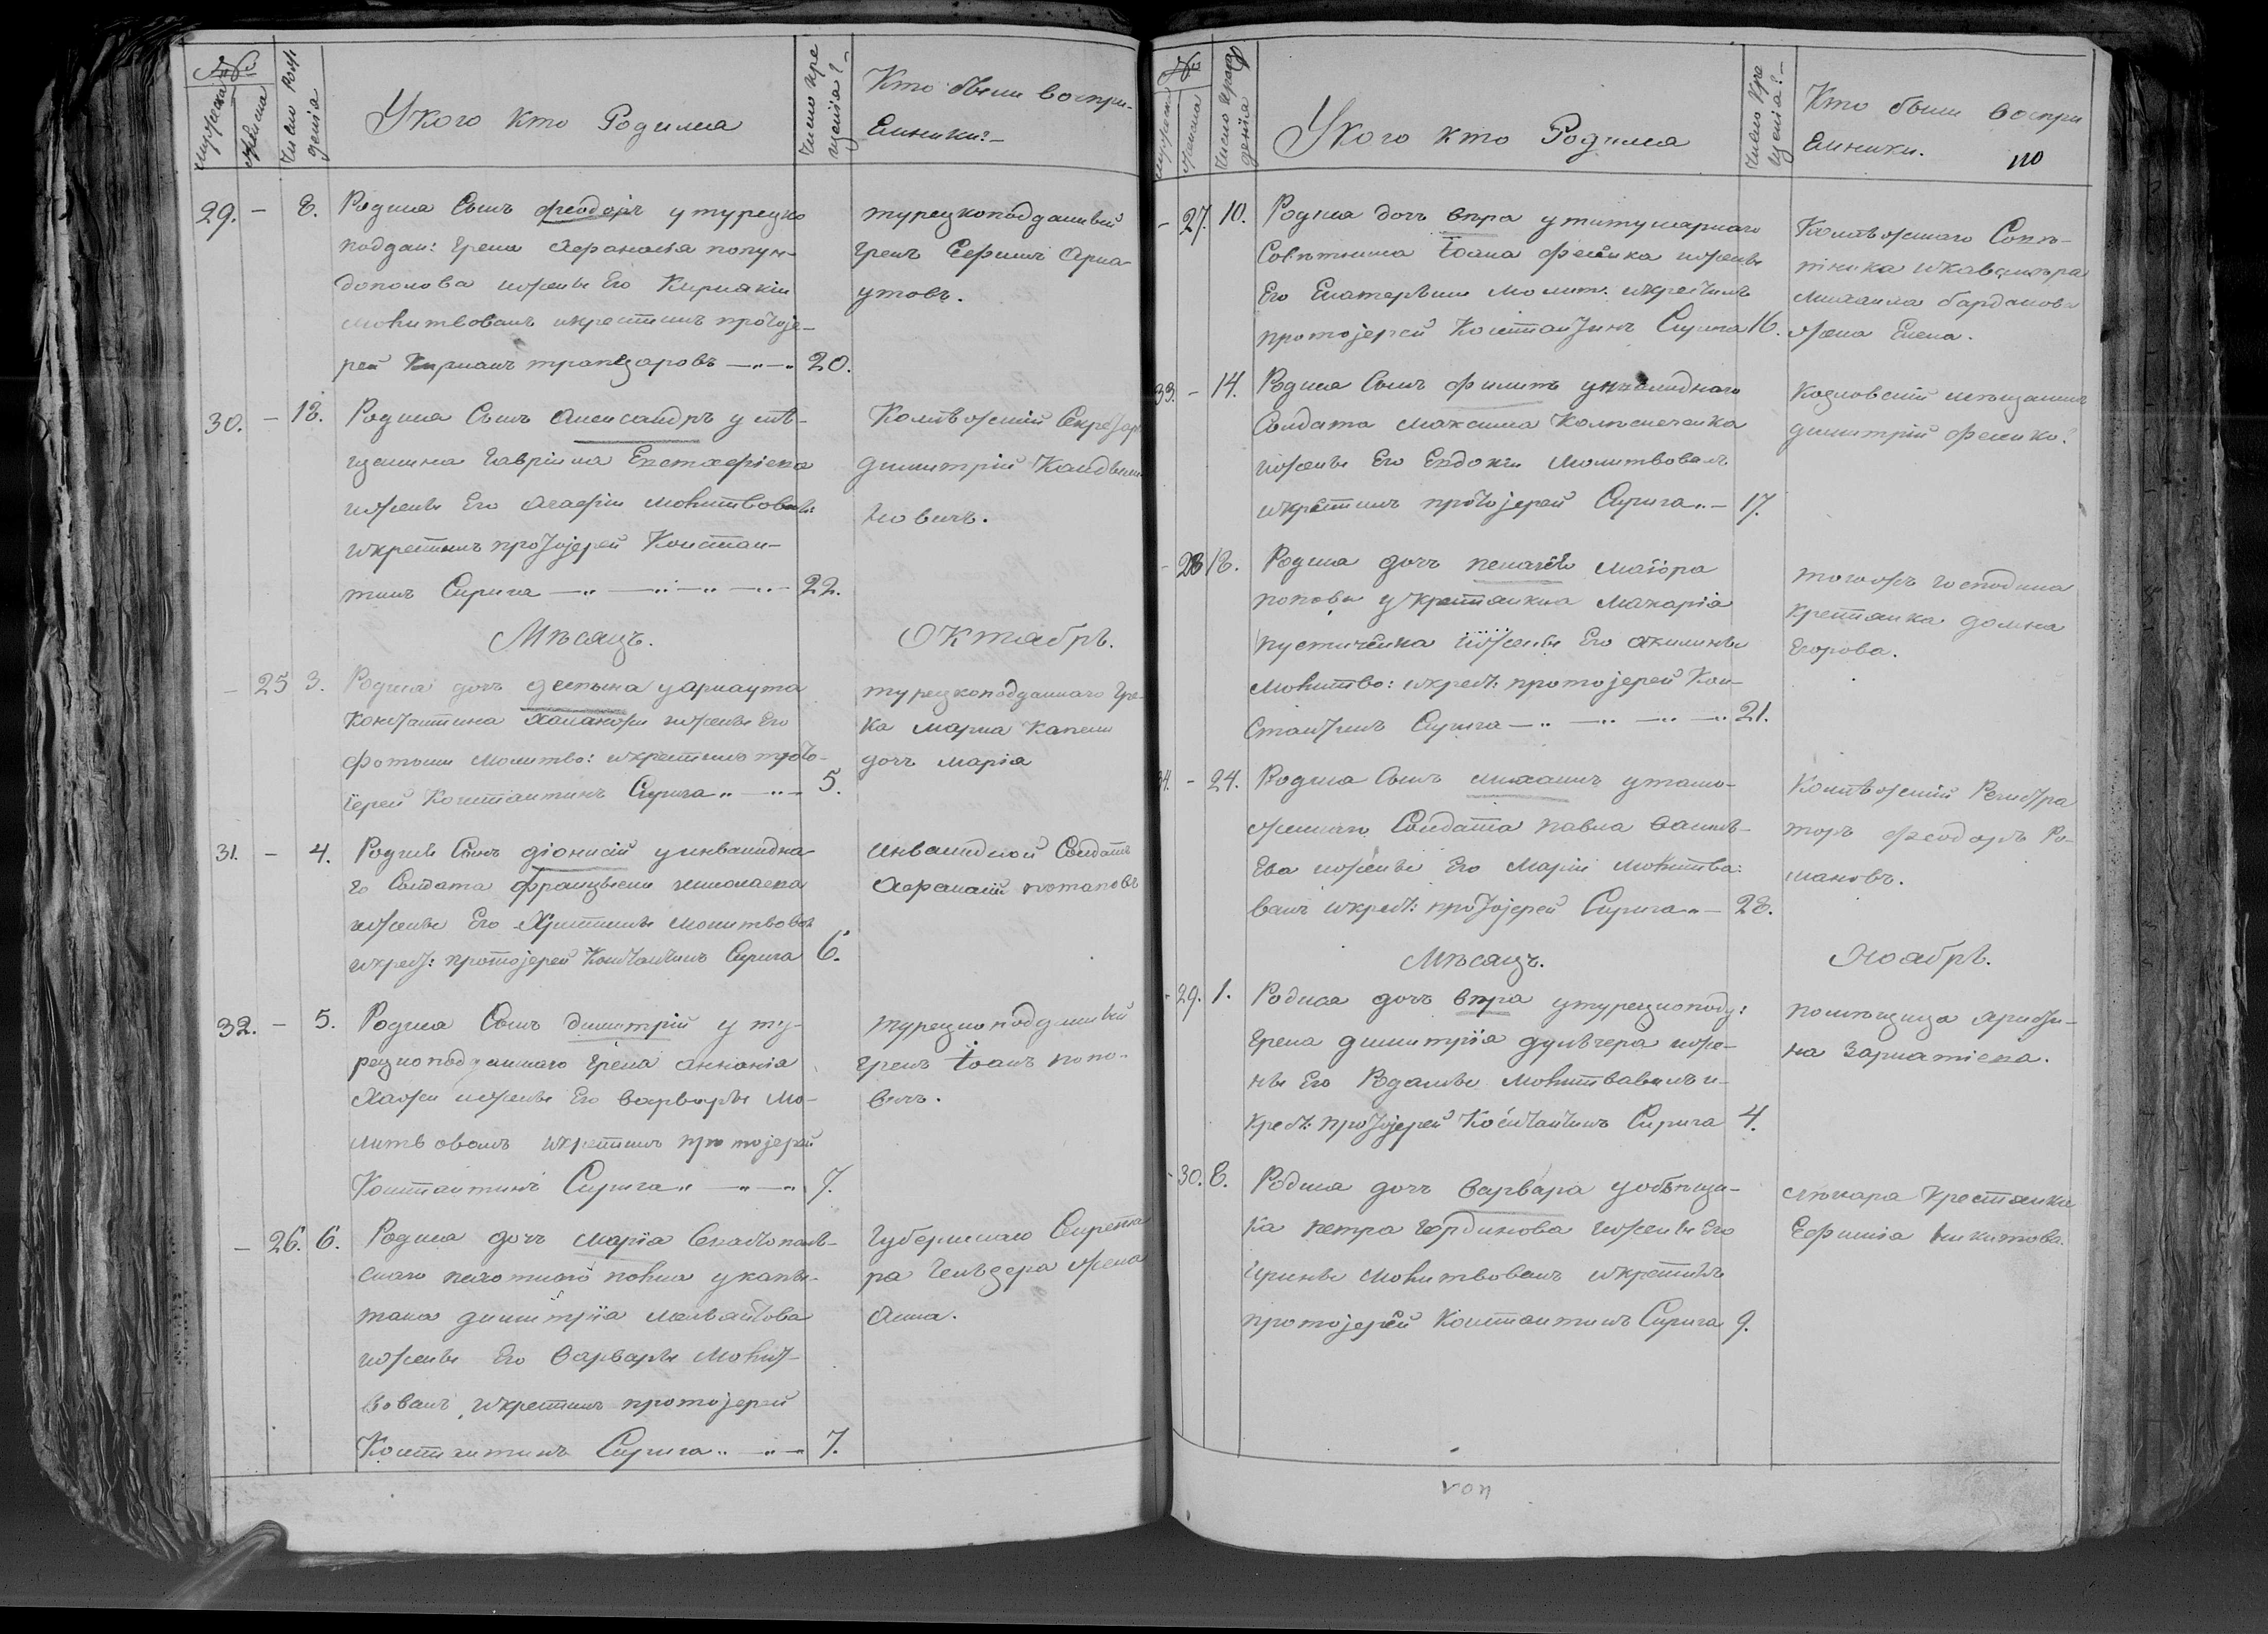 №
мужеска
женска
Число рож
денія
У кого кто Родился
Число кре
щенія?
Кто были воспри-
емники?
29. - 8. Родился Сынъ Феодоръ у турецко
поддан: грека Афанасія попун-
дополова и жены Его Киріакіи
молитвовалъ и крестилъ протоје-
рей Кирианъ трапезаровъ 20.
турецкоподданный
грекъ Ефимъ Арна-
утовъ.
30. - 18. Родился Сынъ Александръ у мѣ-
щанина Гавріила Евстафіева
и жены Его Агафіи Молитвовалъ
и крестилъ протоjерей Констан-
тинъ Сирига 22.
Колѣжскій Секретарь
Димитрій Кандыи-
новичъ.
Мѣсяцъ. Октябрь.
- 25 3. Родися дочь Деспина у арнаута
Константина Халанжи и жены Его
Фотыни Молитво: и крестилъ прото-
іерей Константинъ Сирига 5.
турецкоподданнаго гре-
ка Марка Капели
дочь Марія
31. - 4. Родился Сынъ Діонисій у инвалидна-
го Солдата Францыска Николаева
и жены Его Христины Молитвовал
и крест: протоjерей Константинъ Сирига 6.
Инвалидной Солдатъ
Афанасій Потаповъ
32. - 5. Родися Сынъ Димитрій у ту-
рецкоподданнаго Грека Ананія
Хаджи и жены Его Варвары Мо-
литвовалъ и крестилъ протоjерей
Константинъ Сирига 7.
турецкоподданный
грекъ Іоанъ Попо-
вичъ.
- 26. 6. Родися дочь Марія Севастополь-
скаго пехотнаго полка у капи-
тана Димитрія Мелѣантова
и жены Его Варвары Молит-
вовалъ и крестилъ протоjерей
Константинъ Сирига 7.
Губернскаго Секрета
ра Гельдера жена
Анна.
№
мужеска
женска
Число рож
денія
У кого кто Родился
Число кре
щенія?
Кто были воспри
емники.
110
- 27. 10. Родися дочь Вѣра у титулярнаго
Совѣтника Іоана Фейка и жены
Его Екатерины Молит: и крестилъ
протоjерей Константинъ Сирига 16.
Колѣжскаго Совѣ-
тника и кавалера
Михаила барданова
жена Елена.
33. - 14. Родися Сынъ Филипъ у инвалиднаго
Солдата Максима Колисниченка
и жены Его Евдокіи Молитвовалъ
и крестилъ протоjерей Сирига 17.
Козловскій мѣщанинъ
Димитрій Фенико.
- 28 18. Родися дочь Пелагѣя Маіора
Попова у крестянина Макарія
Пустичейка и жены Его Акилины
Молитво: и крест: протоjерей Кон-
стантинъ Сирига 21.
тогожъ господина
крестянка Домна
Егорова.
34. - 24. Родися Сынъ Михаилъ у тамо-
женнаго Солдата Павла Василь-
ева и жены Его Маріи Молитво:
валъ и крест: протоjерей Сирига 28.
Колѣжскій Регистра
торъ Феодоръ Ро-
мановъ.
Мѣсяцъ. Ноябрь.
- 29. 1. Родися дочь Вѣра у турецкоподд:
Грека Димитрія Дулѣгера и же-
ны Его Роданы Молитвовалъ и
крест: протоjерей Константинъ Сирига 4.
помѣщица Христи-
на Зарматіева.
- 30. 8. Родися дочь Варвара у объѣзщи-
ка Петра Гординова и жены Его
Ирины Молитвовалъ и крестилъ
протоjерей Константинъ Сирига 9.
крестянка
Ефимія Никитова.